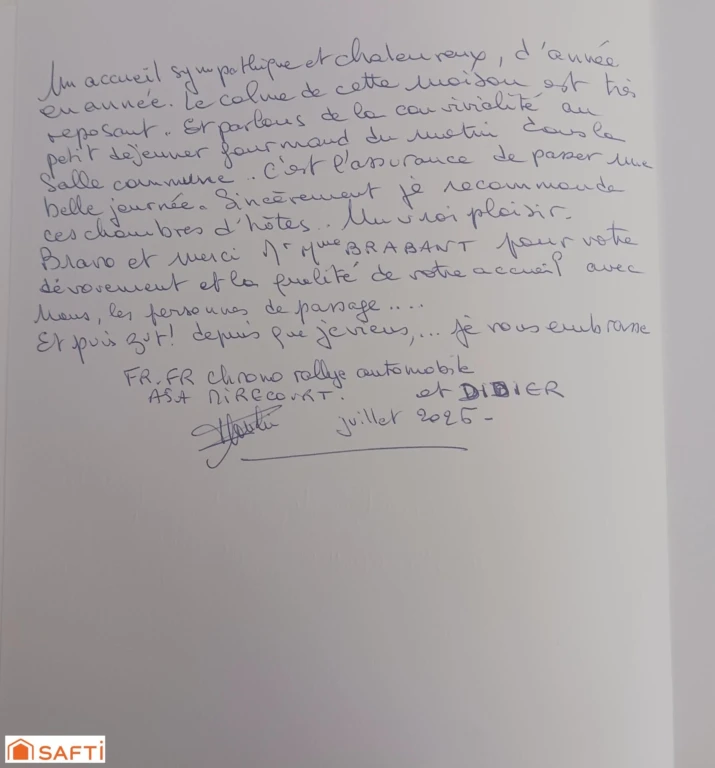 Un accueil sympathique et chaleureux, d'année
en année. Le calme de cette maison est très
reposant. Et parlons de la convivialité au
petit déjeuner gourmand du matin dans la
salle commune. C'est l'assurance de passer une
belle journée. Sincèrement je recommande
ces chambres d'hôtes.. Un vrai plaisir.
Bravo et merci Mr Mme BRABANT pour votre
dévouement et la qualité de votre accueil avec
nous, les personnes de passage....
Et puis zut! depuis que je viens,... je vous embrasse
FR.FR chrono rallye automobile
ASA MIRECOURT. et DIDIER
juillet 2025 -
SAFTI